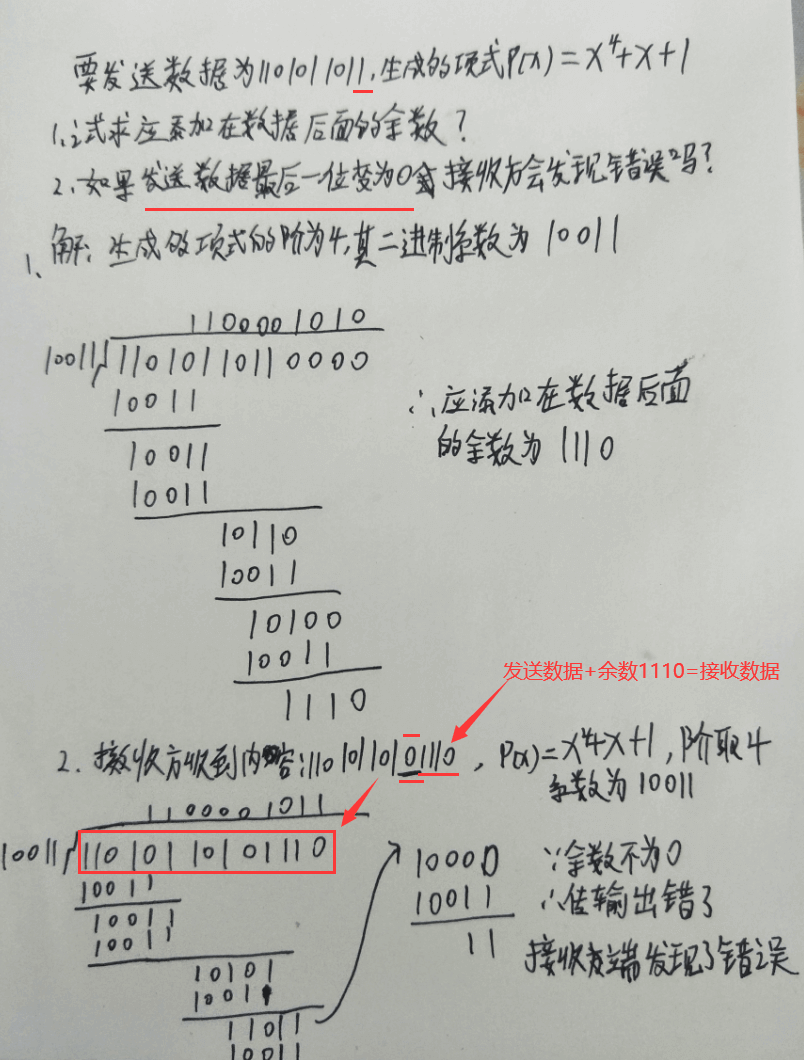 要发送数据为1101011011,生成多项式P(x)=x⁴+x+1
1、试求应添加在数据后面的余数?
2、如果发送数据最后一位变为0 接收方会发现错误吗?
1、解:生成多项式的阶为4,其二进制系数为 10011
1100001010
10011 11010110110000
10011
10011
10011
10110
10011
10100
10011
1110
∴应添加在数据后面
的余数为1110
发送数据+余数1110=接收数据
2. 接收方收到内容:11010110101110, P(x)=x⁴+x+1,阶取4
系数为10011
1100001011
10011 11010110101110
10011
10011
10011
10101
10011
11011
10011
10000
10011
11
∵余数不为0
∴传输出错了
接收端发现了错误